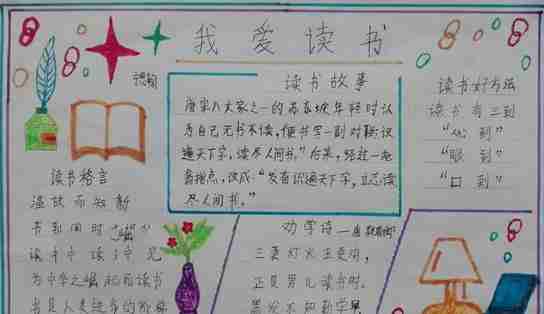 我爱读书
读书故事
唐宋八大家之一的苏东坡年轻时认
为自己无书不读，便书写一副对联"识
遍天下字，读尽人间书。"后来，经过一老
者指点，改成："发奋识遍天下字，立志读
尽人间书。"
读书好方法
读书有三到
"心到"
"眼到"
"口到"
读书格言
温故而知新
书到用时
读书中
为中华之崛起而读书
书是人类进步的阶梯
劝学诗
三更灯火五更鸡，
正是男儿读书时。
黑发不知勤学早